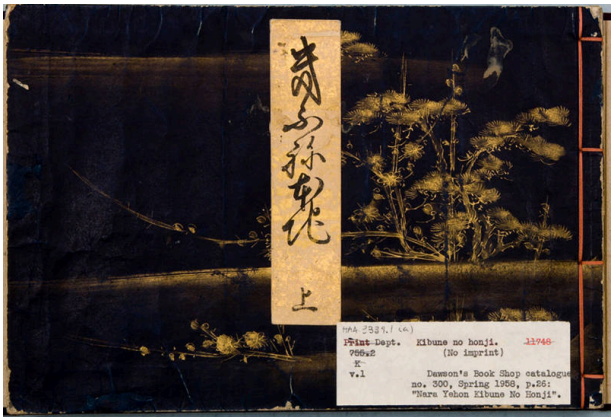 幾ふ祢本地
上
Print Dept. Kibune no honji. 11748
(No imprint)
K
v.1 Dawson's Book Shop catalogue
no. 300, Spring 1958, p.26:
"Nara Yehon Kibune No Honji".